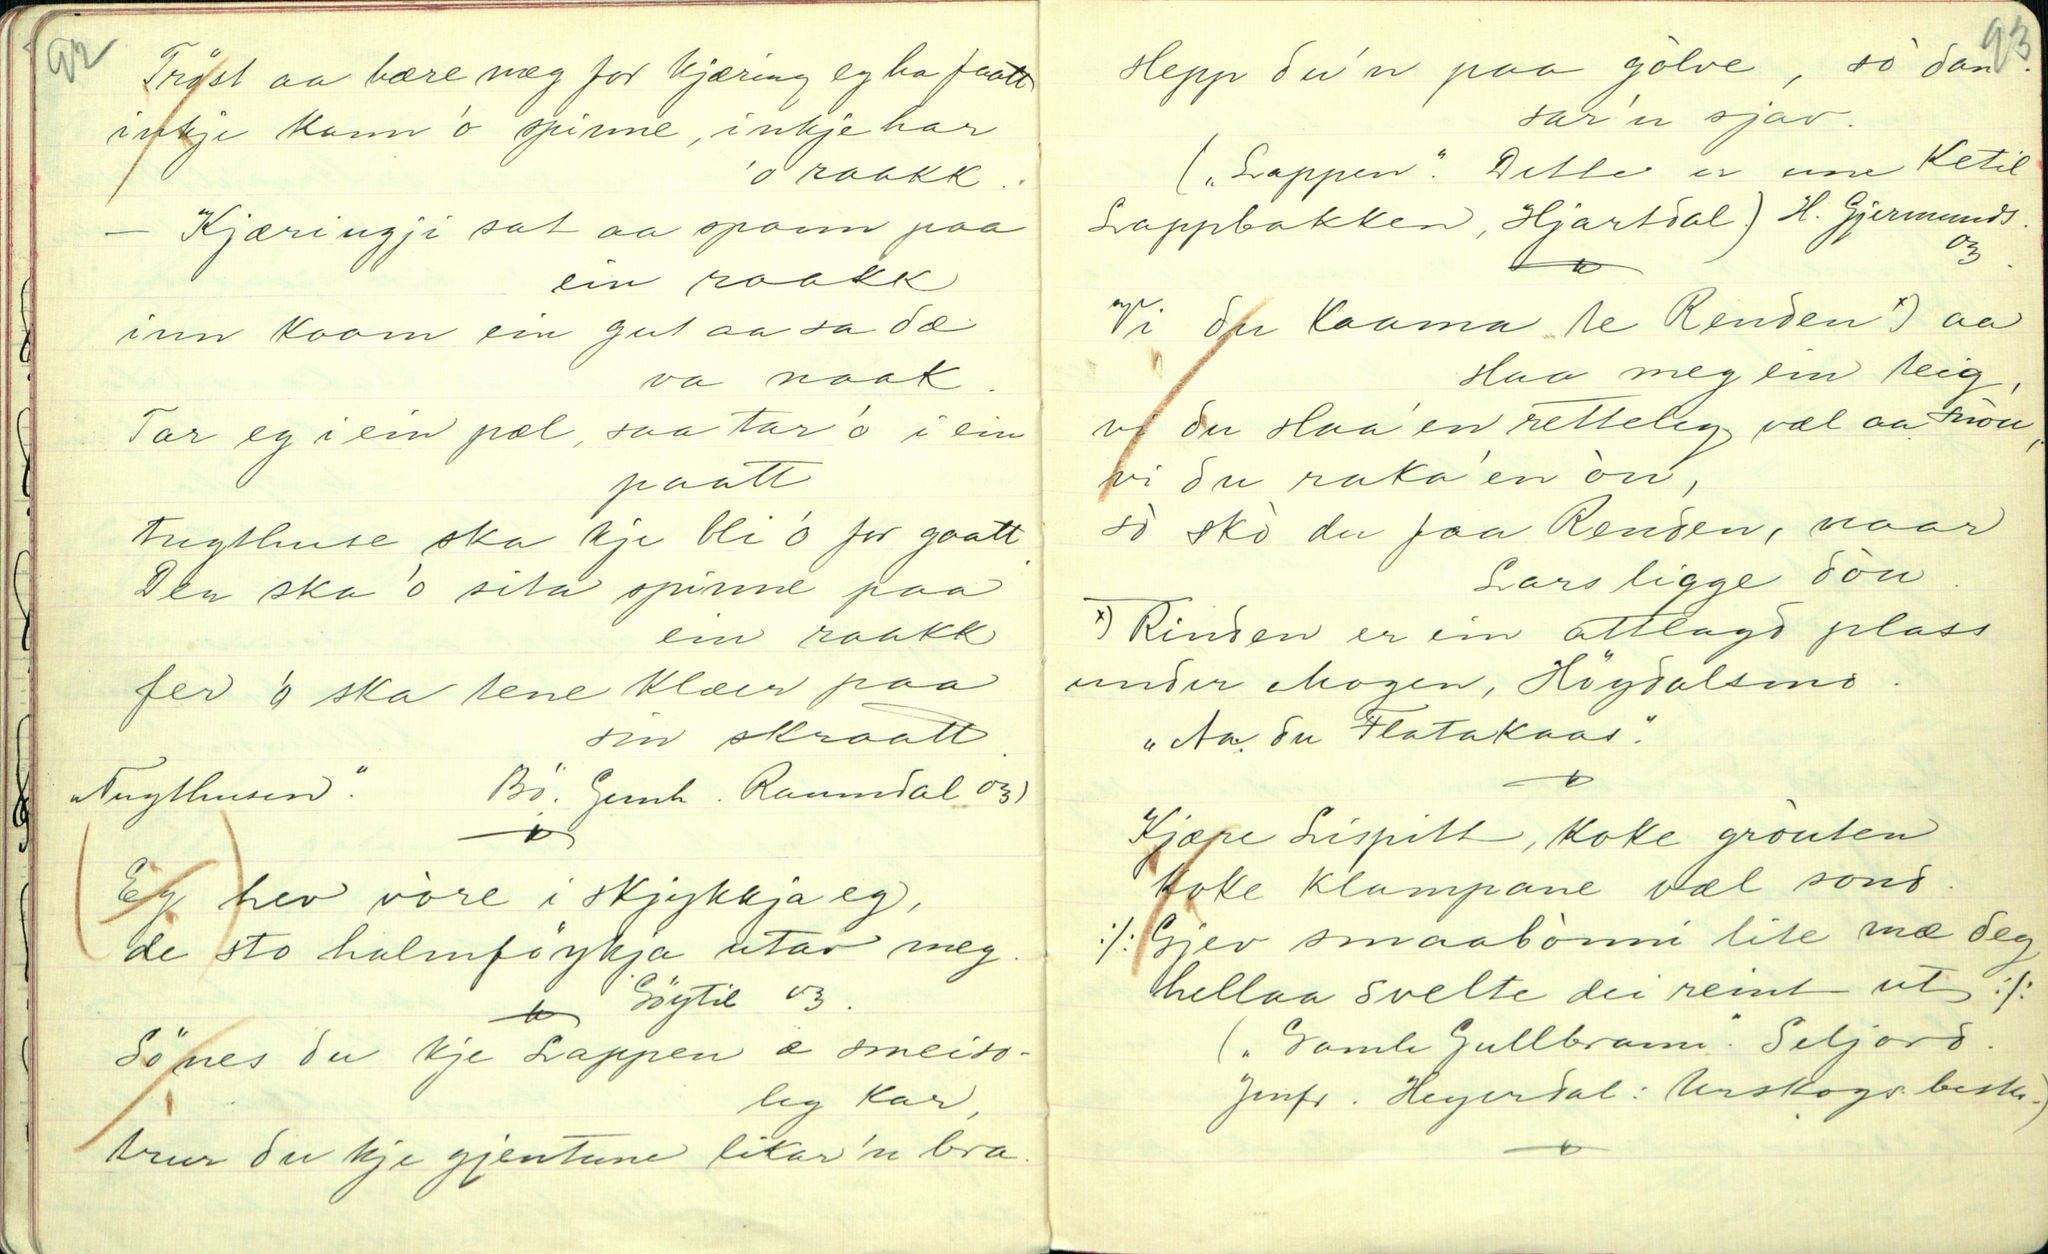 92
Tröst aa bære meg for kjæring eg ha faatt
inkje kann 'o spinne, inkje har
'o raakk.
— Kjæringji sat aa spann paa
ein raakk
inn kaam ein gut aa sa dæ
va naak.
Tar eg i ein pæl, saa tar 'o i ein
paatt
Tugthuse ska kje bli 'o for gaatt.
Der ska 'o sita spinne paa
ein raakk
fer 'o ska tene klæer paa
sin skraatt.
"Tugthusen". Bö. Gunh. Raumdal 03)
Eg hev vòre i skjykkja eg,
de sto halmföykja utav meg.
Göytil 03.
Sö'nes du kje Lappen æ smeiso-
leg kar,
trur du kje gjentune likar'n bra.
93
Slepp du'n paa gòlve, sò dan-
sar'n sjav.
("Lappen". Dette er une Ketil
Lappbakken, Hjartdal) H. Gjermunds.
03.
Vi du kaama te Renden x) aa
slaa meg ein teig,
vi du slaa'en retteleg væl aa snòu,
vi du raka'en òu,
sò skò du faa Renden, naar
Lars ligge dòu.
x) Rinden er ein attlagd plass
under Mogen, Höydalsmo.
"Aa du Flatakaas".
Kjære Lispitt, koke gròuten
koke klumpane væl sond.
:/: Gjev smaabònni lite mæ deg
hellaa svelte dei reint ut :/:
("Gamle Gullbrann". Seljord.
Jmfr. Heyerdal: Urskogs beskr.)